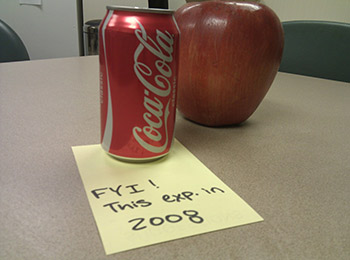 Coca-Cola
FYI!
This exp. in
2008